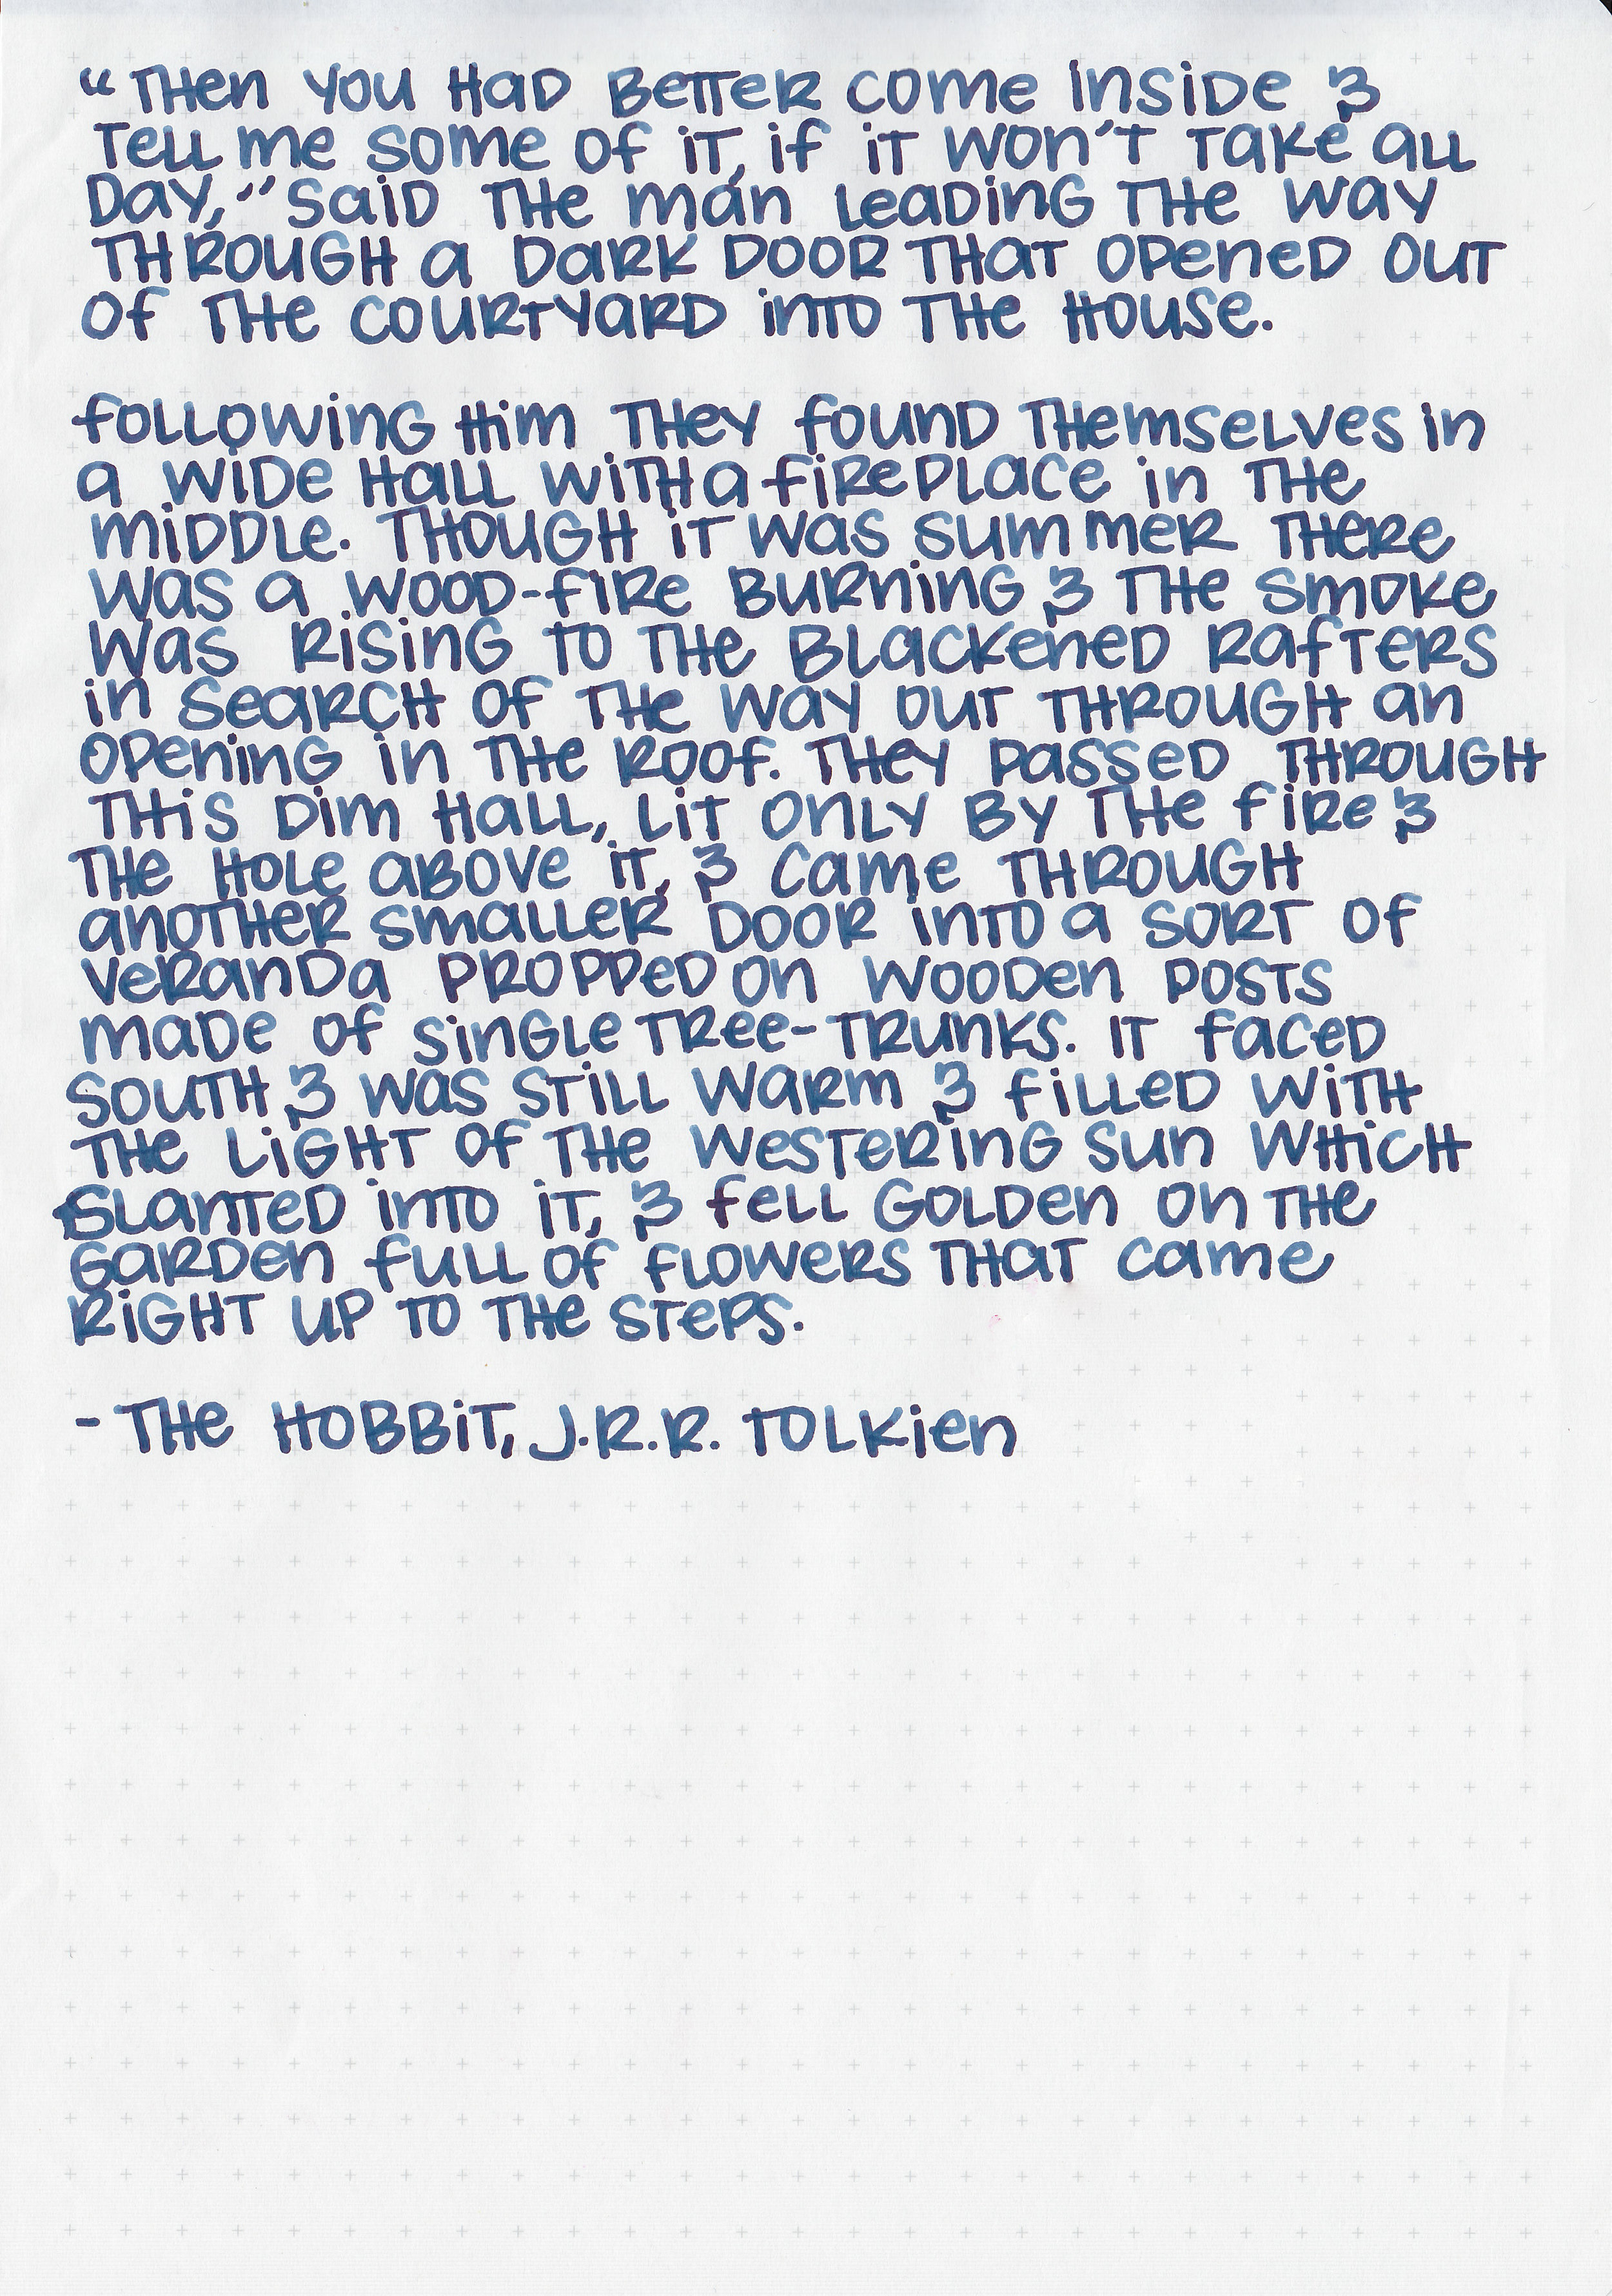 “Then you had better come inside &
tell me some of it, if it won't take all
day,” said the man leading the way
through a dark door that opened out
of the courtyard into the house.

Following him they found themselves in
a wide hall with a fireplace in the
middle. Though it was summer there
was a wood-fire burning & the smoke
was rising to the blackened rafters
in search of the way out through an
opening in the roof. They passed through
this dim hall, lit only by the fire &
the hole above it, & came through
another smaller door into a sort of
veranda propped on wooden posts
made of single tree-trunks. It faced
south & was still warm & filled with
the light of the westering sun which
slanted into it, & fell golden on the
garden full of flowers that came
right up to the steps.

- The Hobbit, J.R.R. Tolkien